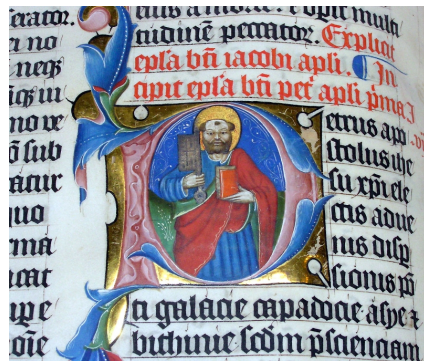 no
neqs
sub
quo
eius a morte. & opit multi
tudinē peccator. Explicit
epl̄a bt̄i iacobi apl̄i. In
cipit epl̄a bt̄i pet apl̄i p̄ma
Petrus apo
stolus ihe
su xp̄i ele
ctis adue
nis disp
sionis pō
ti galacie capadocie asye &
bithinie scd̄m p̄scienciam